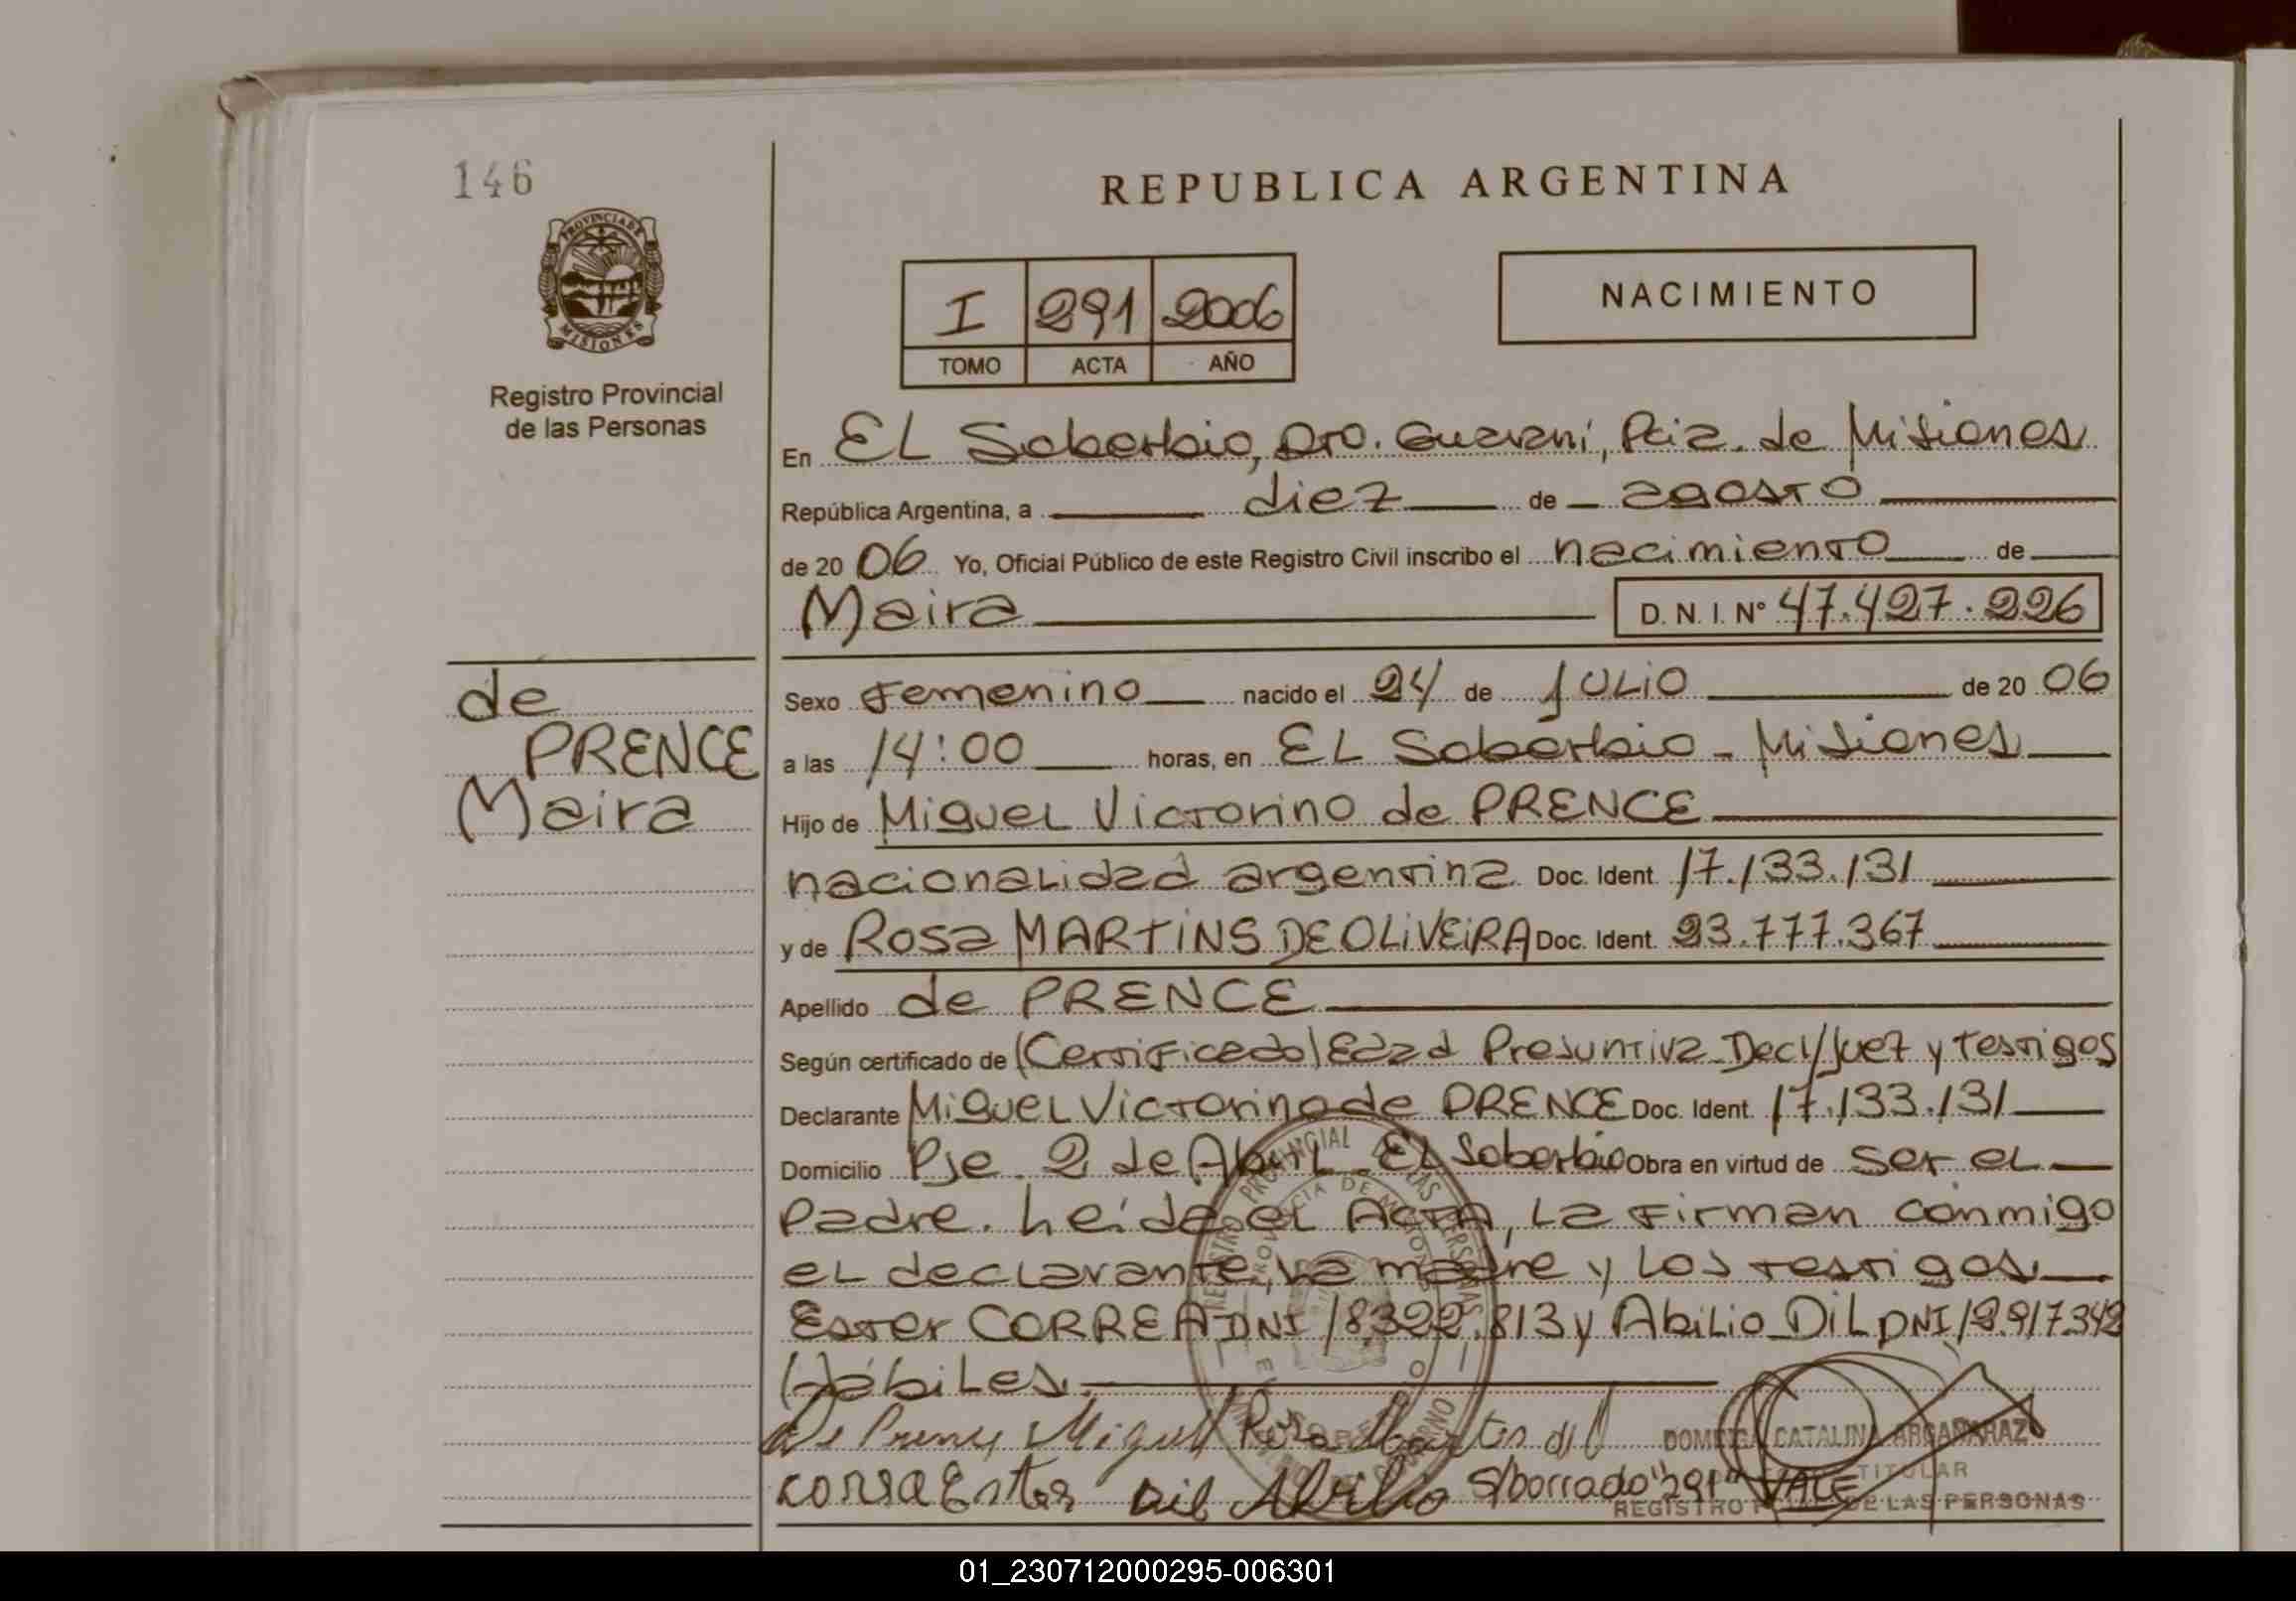 146
PROVINCIA DE
MISIONES
Registro Provincial
de las Personas
REPUBLICA ARGENTINA
I 291 2006
TOMO ACTA AÑO
NACIMIENTO
En EL Soberbio, Dto. Guaraní, Pcia. de Misiones
República Argentina, a diez de agosto
de 20 06 Yo, Oficial Público de este Registro Civil inscribo el nacimiento de
Maira D. N. I. N° 47.427.226
de
PRENCE
Maira
Sexo Femenino nacido el 24 de JULio de 20 06
a las 14:00 horas, en EL Soberbio - Misiones
Hijo de MigueL Victorino de PRENCE
nacionaLidad argentina Doc. Ident. 17.133.131
y de Rosa MARTiNS DE OLiVEiRA Doc. Ident. 93.777.367
Apellido de PRENCE
Según certificado de (Certificado) Edad Presuntiva Decl/Juez y Testigos
Declarante MigueL Victorino de PRENCE Doc. Ident. 17.133.131
Domicilio Pje. 2 de AbriL - EL Soberbio Obra en virtud de ser eL
Padre. Leída eL ACTA, La Firman conmigo
eL decLarante, La madre y Los testigos
Ester CORREA DNI 18.322.813 y AbiLio DiL DNI 12.917.342
HábiLes.
De Prence Miguel Rosa Martin d
correa Ester Dil Abilio S/borrado "291" VALE
DOMINGA CATALINA ARGAÑARAZ
TITULAR
REGISTRO DE LAS PERSONAS
01_230712000295-006301